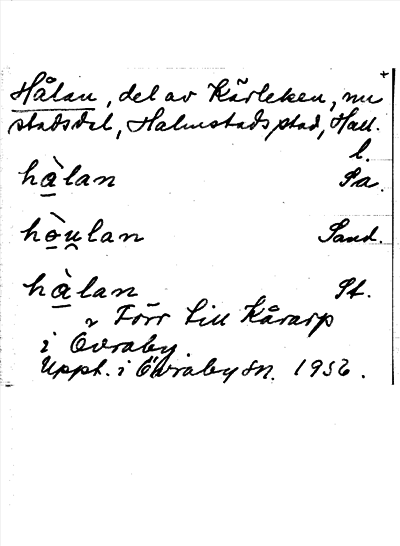 +
Hålan, del av Kärleken, nu
stadsdel, Halmstads stad, Hall.
l.
hàlan Sa.
hòulan Sand.
hàlan St.
Förr till Kårarp
i Övraby.
Uppt. i Övraby sn. 1956.